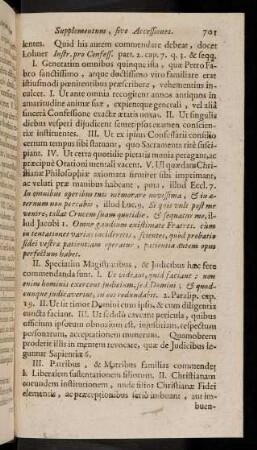 Supplementum, sive Accessiones. 701
lentes. Quid his autem commendare debeat, docet
Lohner Instr. pro Confess. part. 2. cap. 7. q. 3. & seqq.
I. Generatim omnibus quinque ista, quæ Petro Fabro
sanctissimo, atque doctissimo viro familiare erat
istiusmodi pœnitentibus præscribere, vehementius in-
I. Ut ante omnia recogitent annos antiquos in
amaritudine animæ suæ, expienque generali, vel alia
sincera Confessione exacta ætatis noxas. II. Ut singulis
diebus vesperi dijudicent semetipsos examen conscien-
tiæ instituentes. III. Ut ex ipsius Confessarii consilio
certum tempus sibi statuant, quo Sacramenta rite susci-
piant. IV. Ut certa quotidie pietatis munia peragant, ac
præcipue Orationi mentali vacent. V. Ut quædam Chri-
tianæ Philosophiæ axiomata firmiter sibi imprimant,
ac veluti præ manibus habeant, puta, illud Eccl. 7.
In omnibus operibus tuis memorare novissima, & in æ-
ternum non peccabis, illud Luc. 9. Si quis vult post me
venire, tollat Crucem suam quotidie, & sequatur me, il-
lud Jacobi 1. Omne gaudium existimate Fratres, cum
in tentationes varias incideretis, scientes, quod probatio
fidei vestræ patientiam operatur, patientia autem opus
perfectum habet.
II. Speciatim Magistratibus, & Judicibus hæc fere
commendanda sunt. I. Ut videant, quid faciant: non
enim hominis exercent judicium, sed Domini; & quod-
cunque judicaverint, in eos redundabit. 2. Paralip. cap.
19. II. Ut sit timor Domini cum ipsis, & cum diligentia
cuncta faciant. III. Ut sedulo caveant pericula, quibus
officium ipsorum obnoxium est, injustitiam, respectum
personarum, acceptationem munerum. Quamobrem
proderit illis in memoriam revocare, quæ de Judicibus le-
guntur Sapientiæ 6.
III. Patribus, & Matribus familias commendet
I. Liberalem sustentationem filiorum. II. Christianam
eorundem institutionem, unde filios Christianæ Fidei
elementis, ac præceptionibus sedulo imbuant, aut im-
buen-